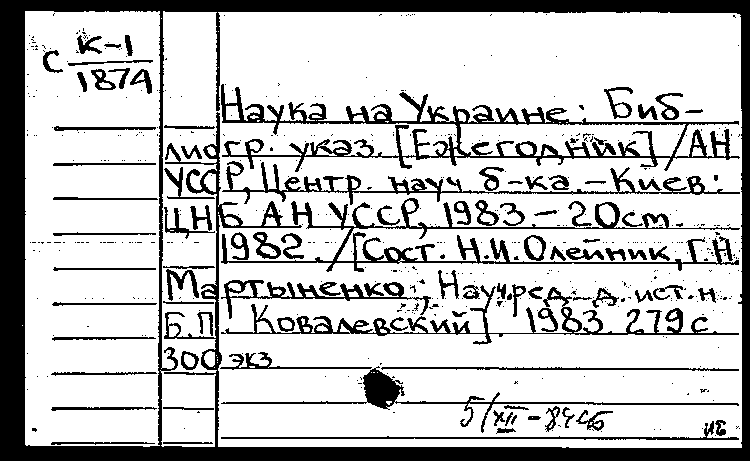 С К-1
1874
Наука на Украине: Биб-
лиогр. указ. [Ежегодник] / АН
УССР, Центр. науч б-ка. - Киев:
ЦНБ АН УССР, 1983. - 20 cm.
1982. / [Сост. Н.И. Олейник, Г.Н.
Мартыненко; Науч. ред. д. ист. н.
Б.П. Ковалевский]. 1983. 279 с.
300 экз.
5/XII-84